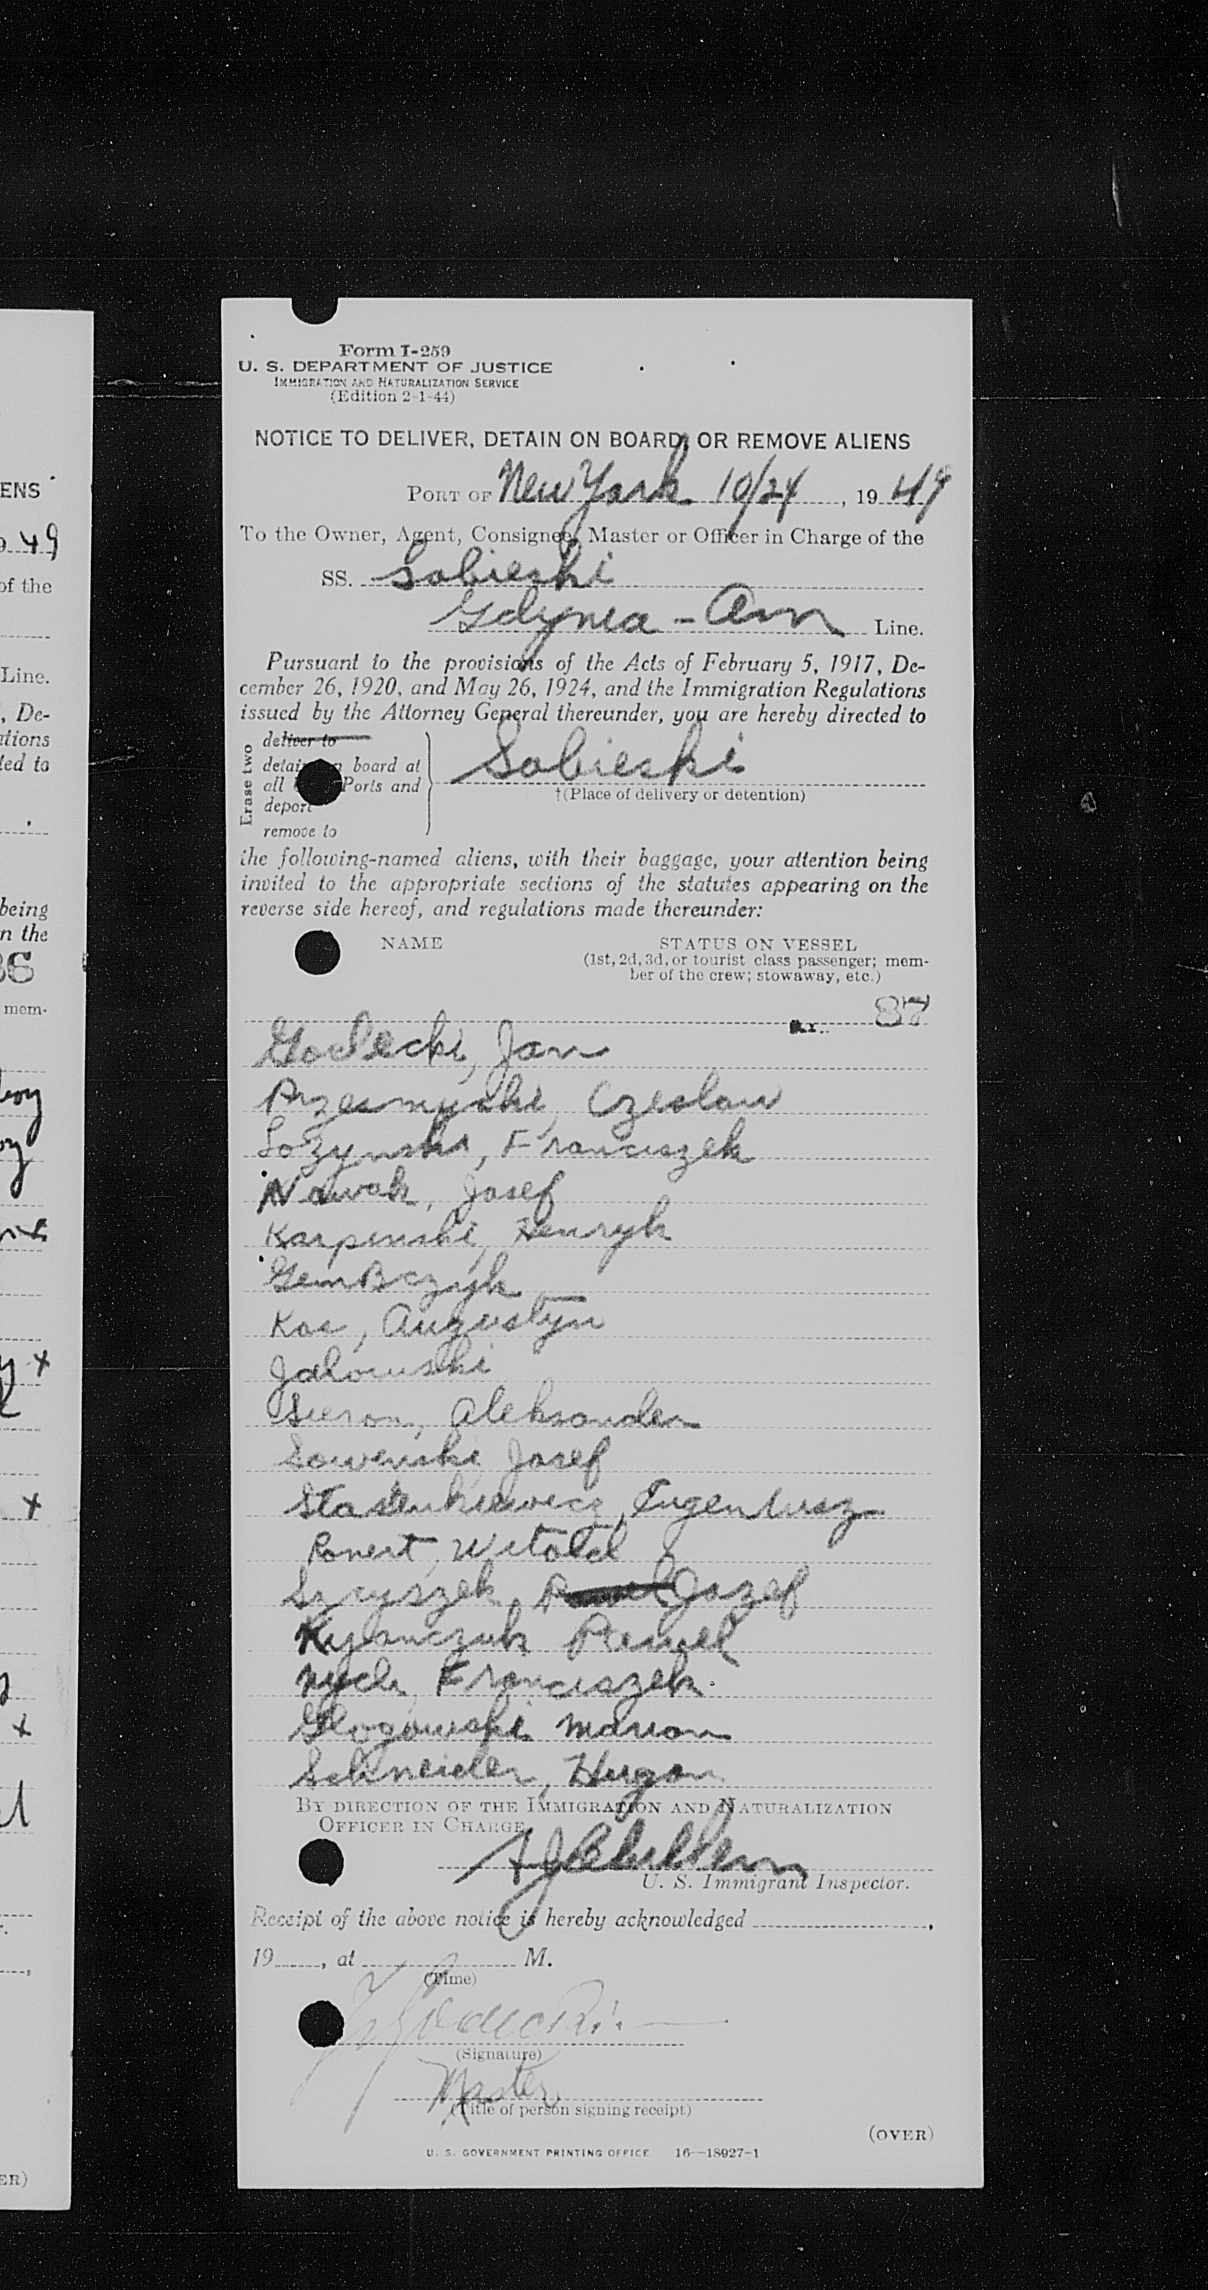 Form I-259
U. S. DEPARTMENT OF JUSTICE
IMMIGRATION AND NATURALIZATION SERVICE
(Edition 2-1-44)
NOTICE TO DELIVER, DETAIN ON BOARD, OR REMOVE ALIENS
PORT OF New York 10/24, 19 49
To the Owner, Agent, Consignee, Master or Officer in Charge of the
SS. Sobieski
Gdynia - Am Line.
Pursuant to the provisions of the Acts of February 5, 1917, De-
cember 26, 1920, and May 26, 1924, and the Immigration Regulations
issued by the Attorney General thereunder, you are hereby directed to
Erase two
deliver to
detain on board at
all Ports and
deport
remove to
Sobieski
†(Place of delivery or detention)
the following-named aliens, with their baggage, your attention being
invited to the appropriate sections of the statutes appearing on the
reverse side hereof, and regulations made thereunder:
NAME
STATUS ON VESSEL
(1st, 2d, 3d, or tourist class passenger; mem-
ber of the crew; stowaway, etc.)
87
Godecki, Jan
Przesmycki, Czeslaw
Lozynski, Franciszek
Nowak, Josef
Karpinski, Henryk
Gembczyk
Kos, Augustyn
Jalowski
Sieron, Aleksander
Sowinski Josef
Stasienkiewicz, Eugeniusz
Ronert, Witold
Szryszek, Jozef
Kylanczuk Pawel
Nycli, Franciszek
Glogowski Marian
Schneider, Hugon
BY DIRECTION OF THE IMMIGRATION AND NATURALIZATION
OFFICER IN CHARGE
U. S. Immigrant Inspector.
Receipt of the above notice is hereby acknowledged ,
19 , at M.
(Time)
(Signature)
Master
(Title of person signing receipt)
(OVER)
U. S. GOVERNMENT PRINTING OFFICE 16—18927-1